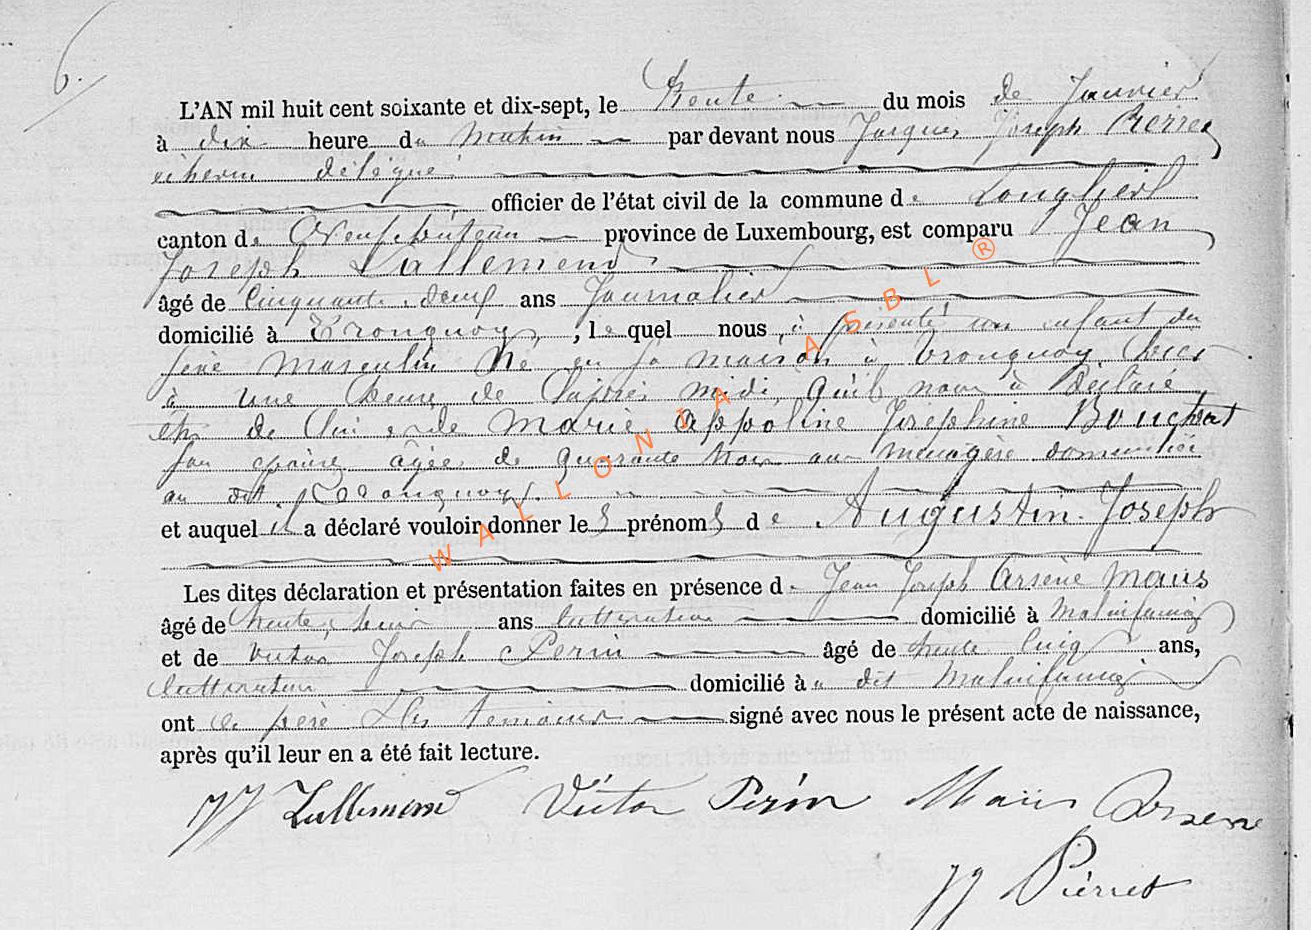 6.
L'AN mil huit cent soixante et dix-sept, le trente du mois de Janvier
à dix heure du matin par devant nous Jacques Joseph Pierret
échevin délégué
officier de l'état civil de la commune de Longlier
canton de Neufchâteau province de Luxembourg, est comparu Jean
Joseph Lallemend
âgé de Cinquante deux ans Journalier
domicilié à Tronquoy, ; le quel nous à présenté un enfant du
sexe masculin Né en sa maison à Tronquoy hier
à une heure de l'après midi, qu'il nous à Déclaré
être de lui et de Marie Appoline Josephine Bouchat
son épouse âgée de quarante trois ans ménagère domiciliée
au dit Tronquoy.
et auquel il a déclaré vouloir donner les prénoms de Augustin Joseph
Les dites déclaration et présentation faites en présence de Jean Joseph Arsène Maus
âgé de trente ans cultivateur domicilié à Malinfaing
et de Victor Joseph Perin âgé de trente cinq ans,
cultivateur domicilié à u dit Malinfaing
ont le père et les temoins signé avec nous le présent acte de naissance,
après qu'il leur en a été fait lecture.
JJ Lallemend Victor Perin Maus Arsene
JJ Pierret
WALLONIA ASBL ®